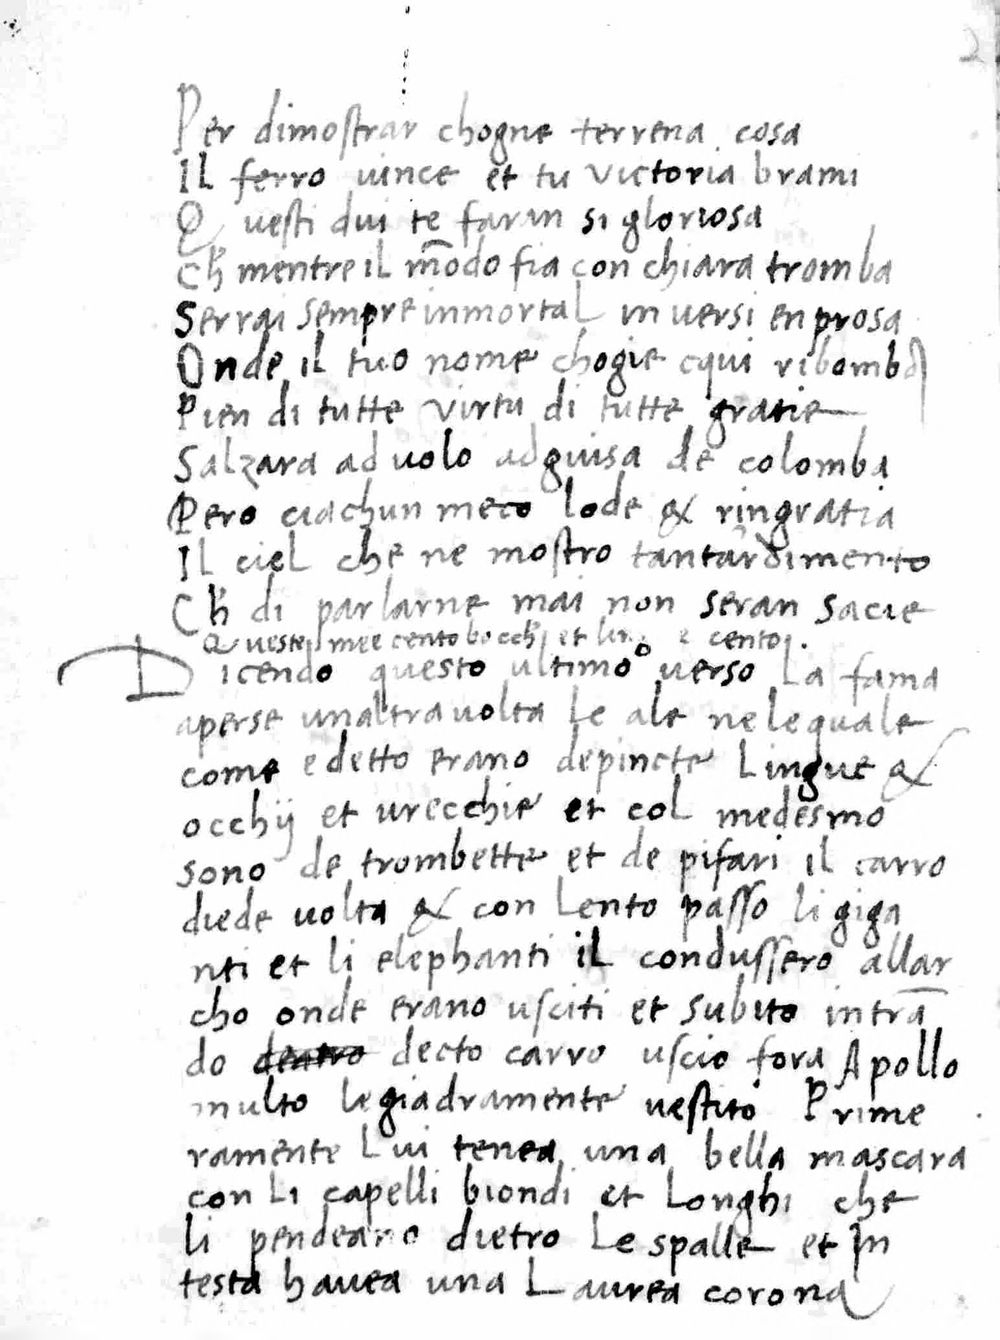 2
Per dimostrar chogne terrena cosa
Il ferro vince et tu victoria brami
Questi dui te faran si gloriosa
Ch̃ mentre il mõdo fia con chiara tromba
Serrai sempre inmortal in versi en prosa
Onde il tuo nome chogie cqui ribomba
Pien di tutte virtu di tutte gratie
Salzara ad volo ad guisa de colomba
Pero ciachun meco lode & ringratia
Il ciel che ne mostro tantardimento
Ch̃ di parlarne mai non seran sacie
Queste mee cento bocch̃ et cento
Dicendo questo ultimo verso La fama
aperse unaltra volta le ale ne le quale
come e detto erano depincte Lingue &
occhij et urecchie et col medesmo
sono de trombette et de pifari il carro
diede volta & con Lento passo li giga
nti et li elephanti il condussero allar
cho onde erano usciti et subito intrã
do dentro decto carro uscio fora Apollo
multo legiadramente vestito Prime
ramente Lui tenea una bella mascara
con Li capelli biondi et Longhi che
li pendeano dietro Le spalle et In
testa havea una Laurea corona